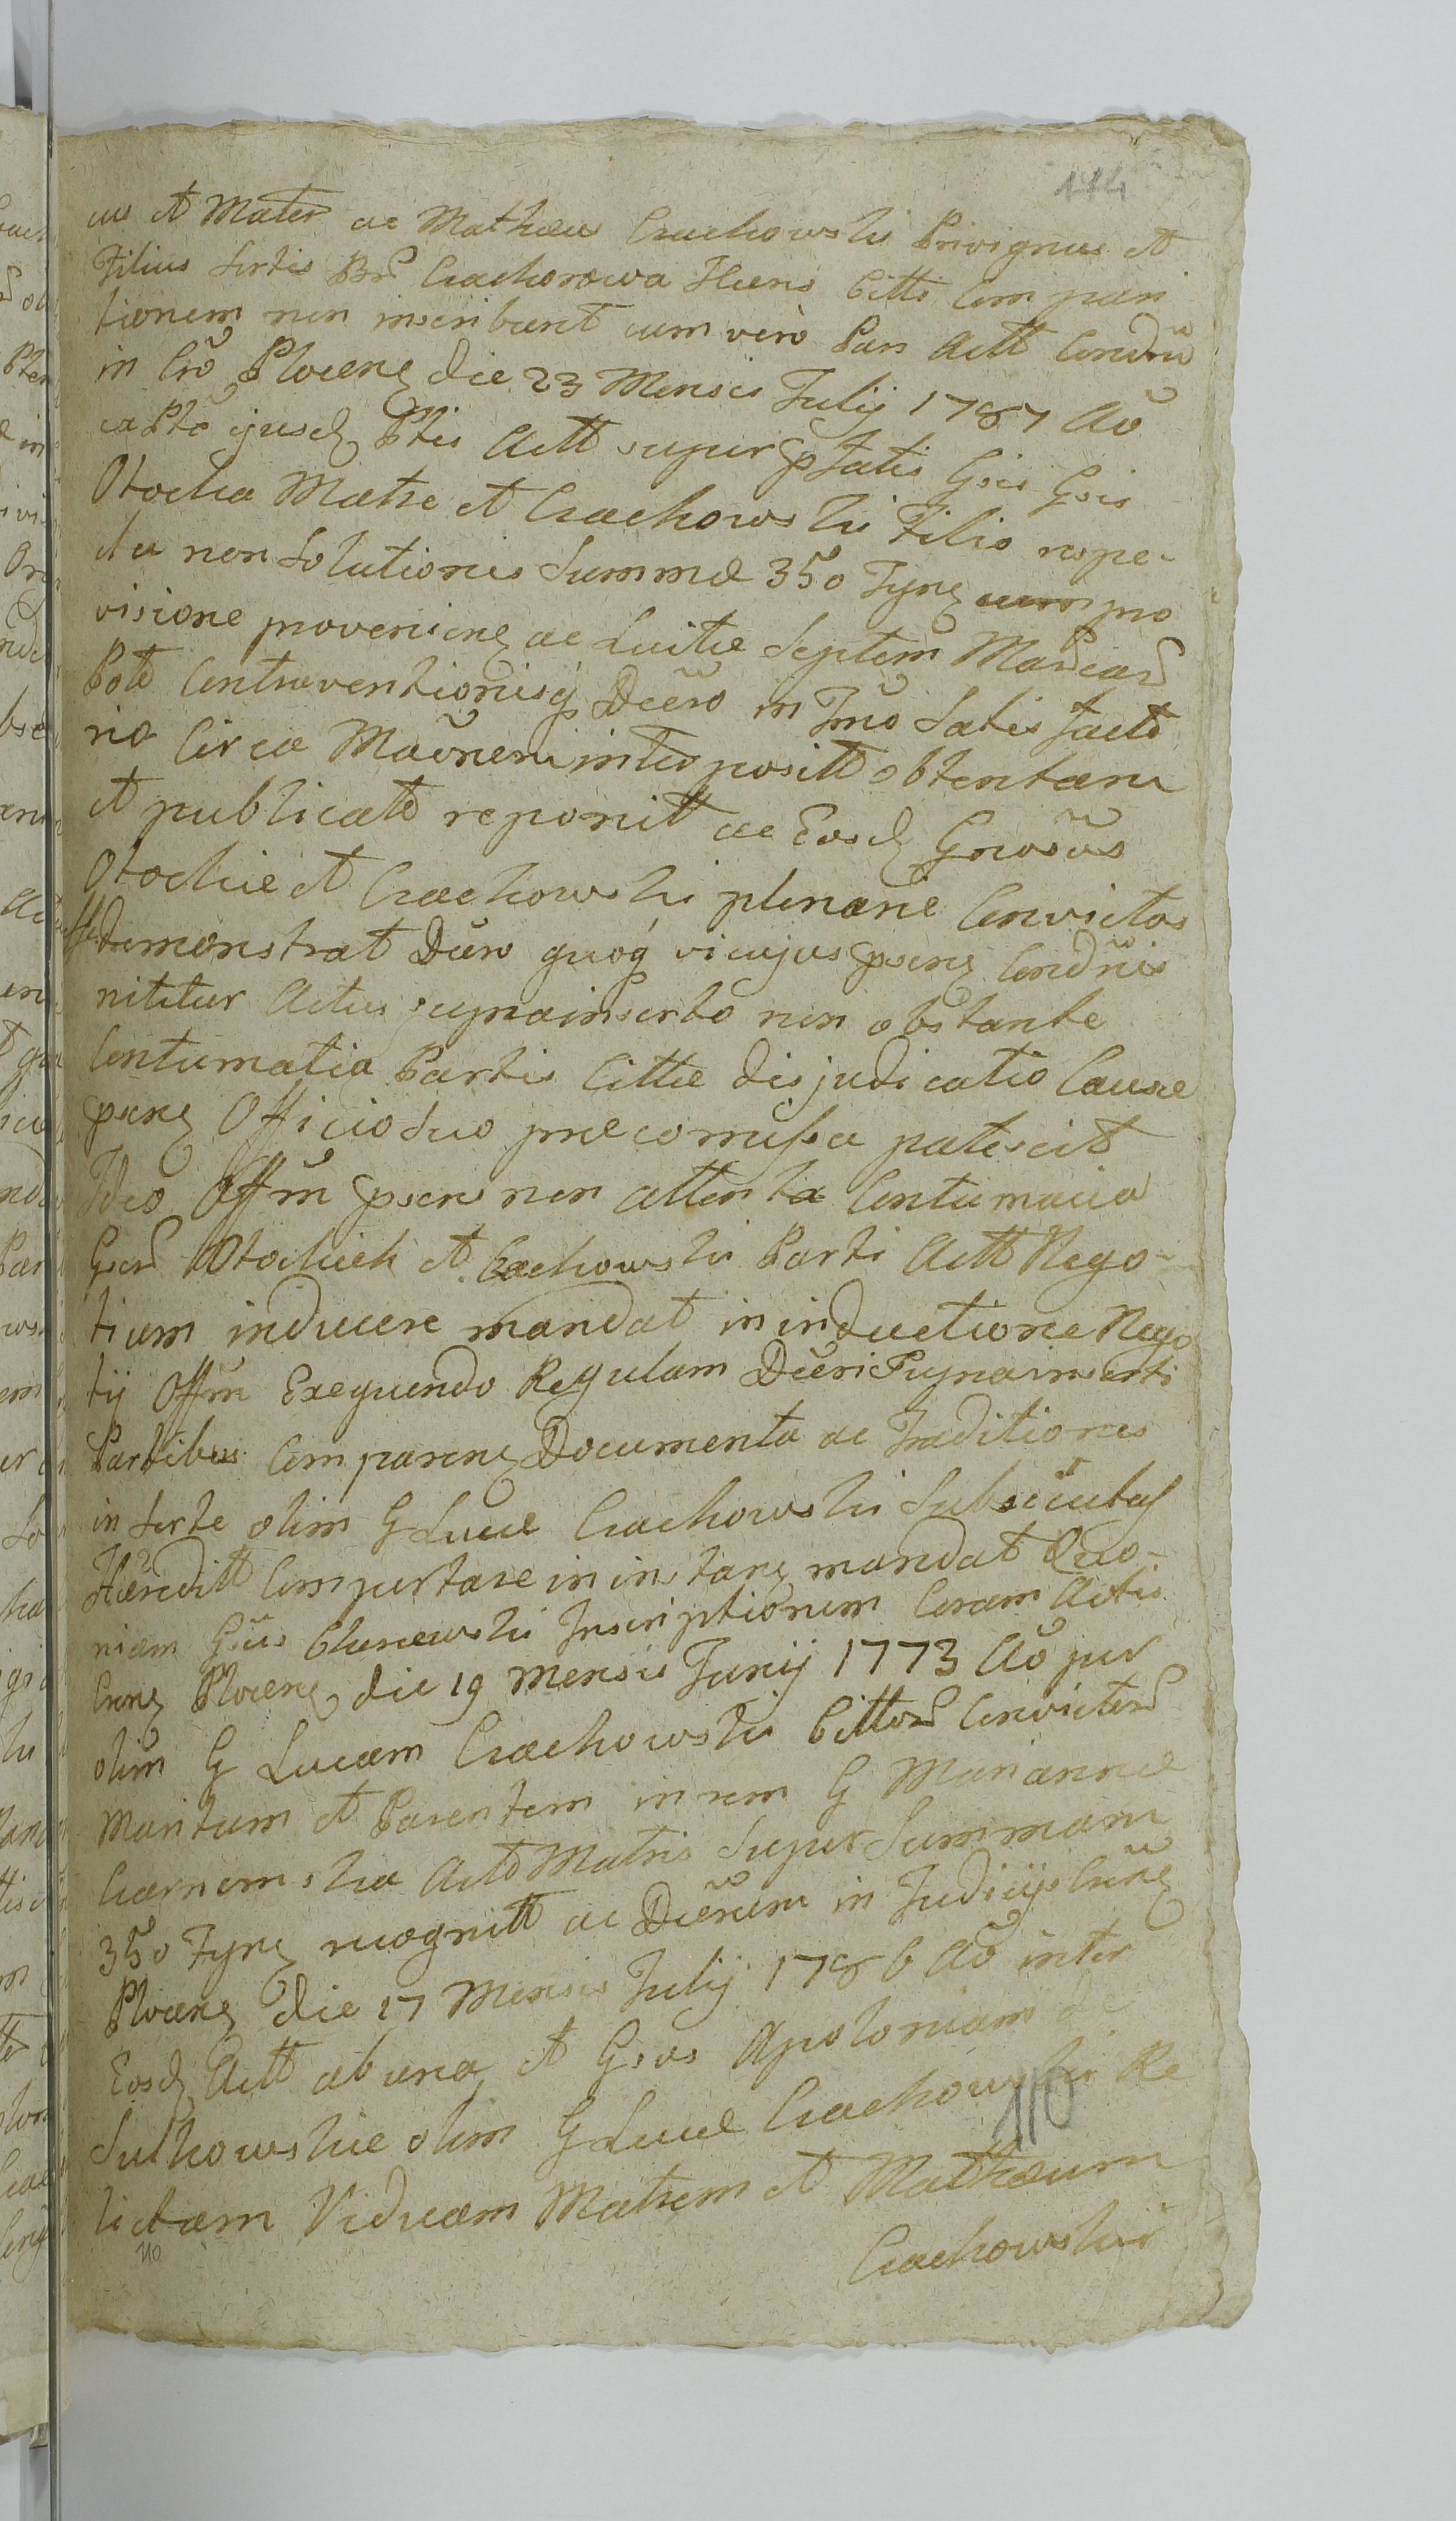 174
cus et Mater ac Mathæus Crachowski Privignus et
Filius Sortis Bnr Crachorowa Hæres Citti Compari
tionem non inscribunt cum vero Pars Actt Condnm
in Cro Plocens die 23 Mensis Julij 1787 Ao
ca Ptte ejusd Ptis Actt super pstatis Gsis Gsis
Otockca Matre et Crachowski Filio respe-
ctu non Solutionis Summæ 350 Fyne cum pro
visione provenien ac Luitæ Septem Marcar
Polo Contraventionisq Decro in Tmo Satis facto
rio Circa Maonem interpositt obtentam
et publicato reponit ac Eosd Gnrosos
Otockie et Crachowski plenarie Convictos
demonstrat Duro quoq vi cujus psens Condnis
nititur Actus suprainserto non obstante
Contumatia Partis Cittæ disjudicatio Causæ
psens Officio Suo præcomissa patescit
Ideo Offm psens non attenta Contumacia
Gsor Otockich et Crachowski Parti Actt Nego-
tium inducere mandat in inductione Nego
tij Offm Exequendo Regulam Decri Suprainserti
Partibus Comparens Documenta ac Traditiones
in Sorte olim G Lucæ Crachowski Subsecutas
Hæreditt Comportare in instans mandat Quo-
niam Gsus Chrnewski Inscriptionem Coram Actis
Crens Plocens die 19 Mensis Junij 1773 Ao per
olim G Lucam Crachowski Cittor Convictor
Maritum et Parentem in rem G Mariannæ
Czarnomska Acto Matris Super Summam
350 Fyne recognitt ac Decrum in Judicijs Crens
Plocens die 17 Mensis Julij 1786 Ao inter
Eosd Actt ab una et Gsos Apoloniam de
Sutkowskie olim G Lucæ Crachowski Re
lictam Viduam Matrem et Mathæum
Crachowski
110
110